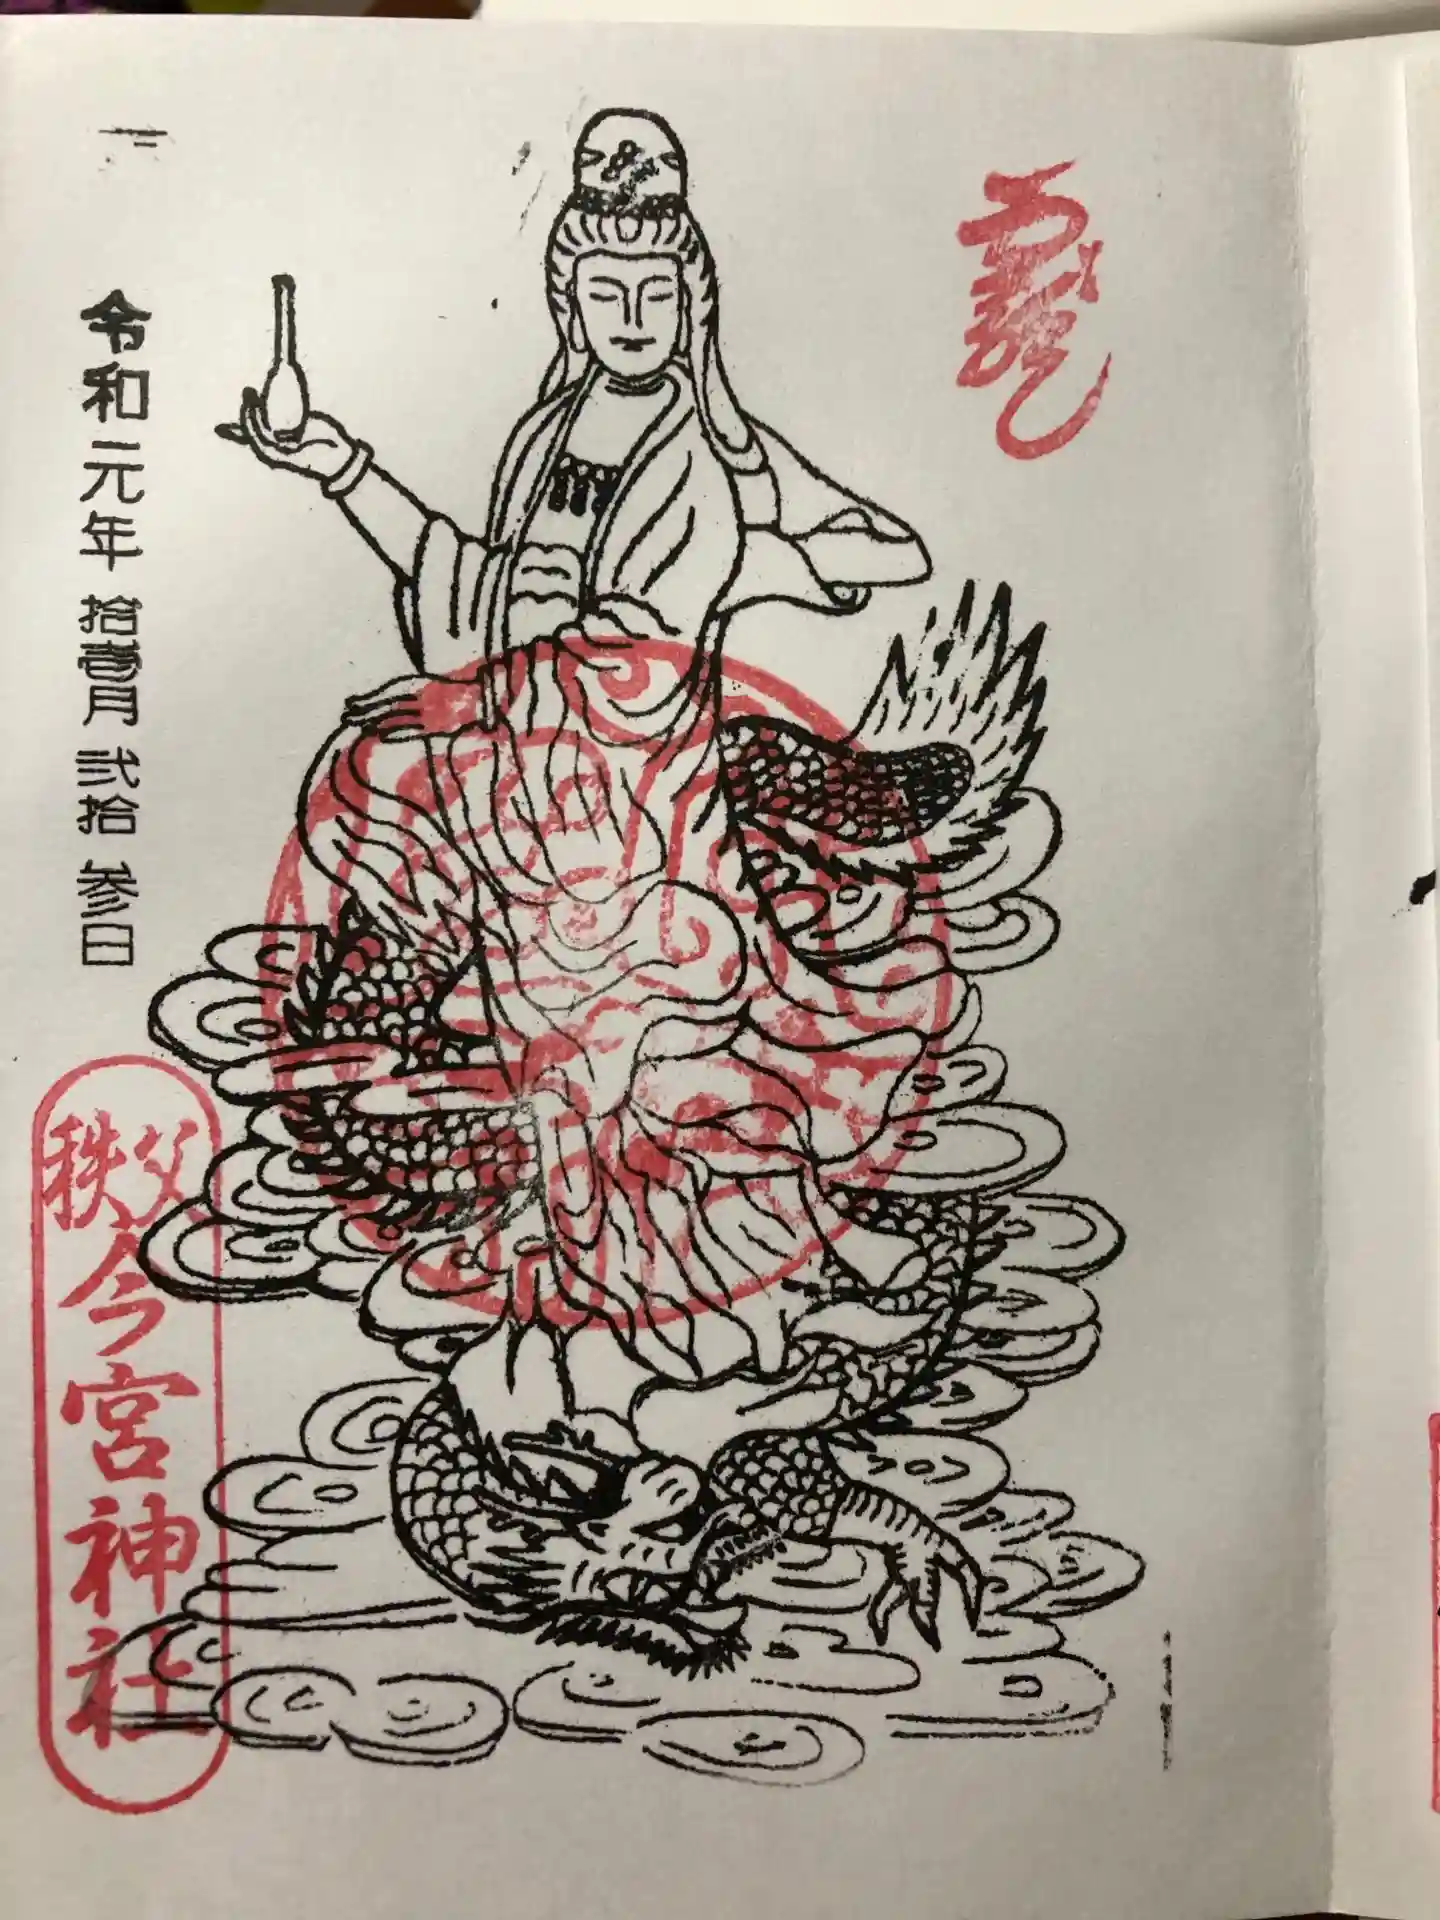 龍
令和元年 拾壹月 弐拾参日
秩父今宮神社